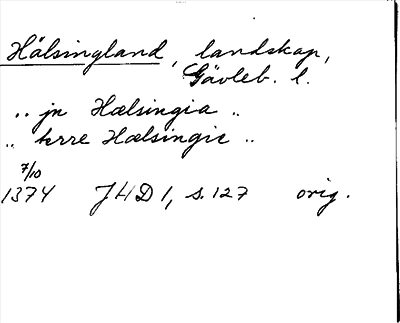 Hälsingland, landskap,
Gävleb. l.
.. jn Hælsingia ..
.. terre Hælsingie ..
7/10
1374 JHD 1, s. 127 orig.